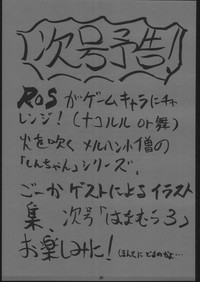 次号予告!
ROSがゲームキャラにチャ
レンジ!(ナコルル or 舞)
火を吹くメルヘン小僧の
「しんちゃん」シリーズ。
ごーかゲストによるイラスト
集、次号「はまむら3」
お楽しみに!(ほんとにでるのかよ…